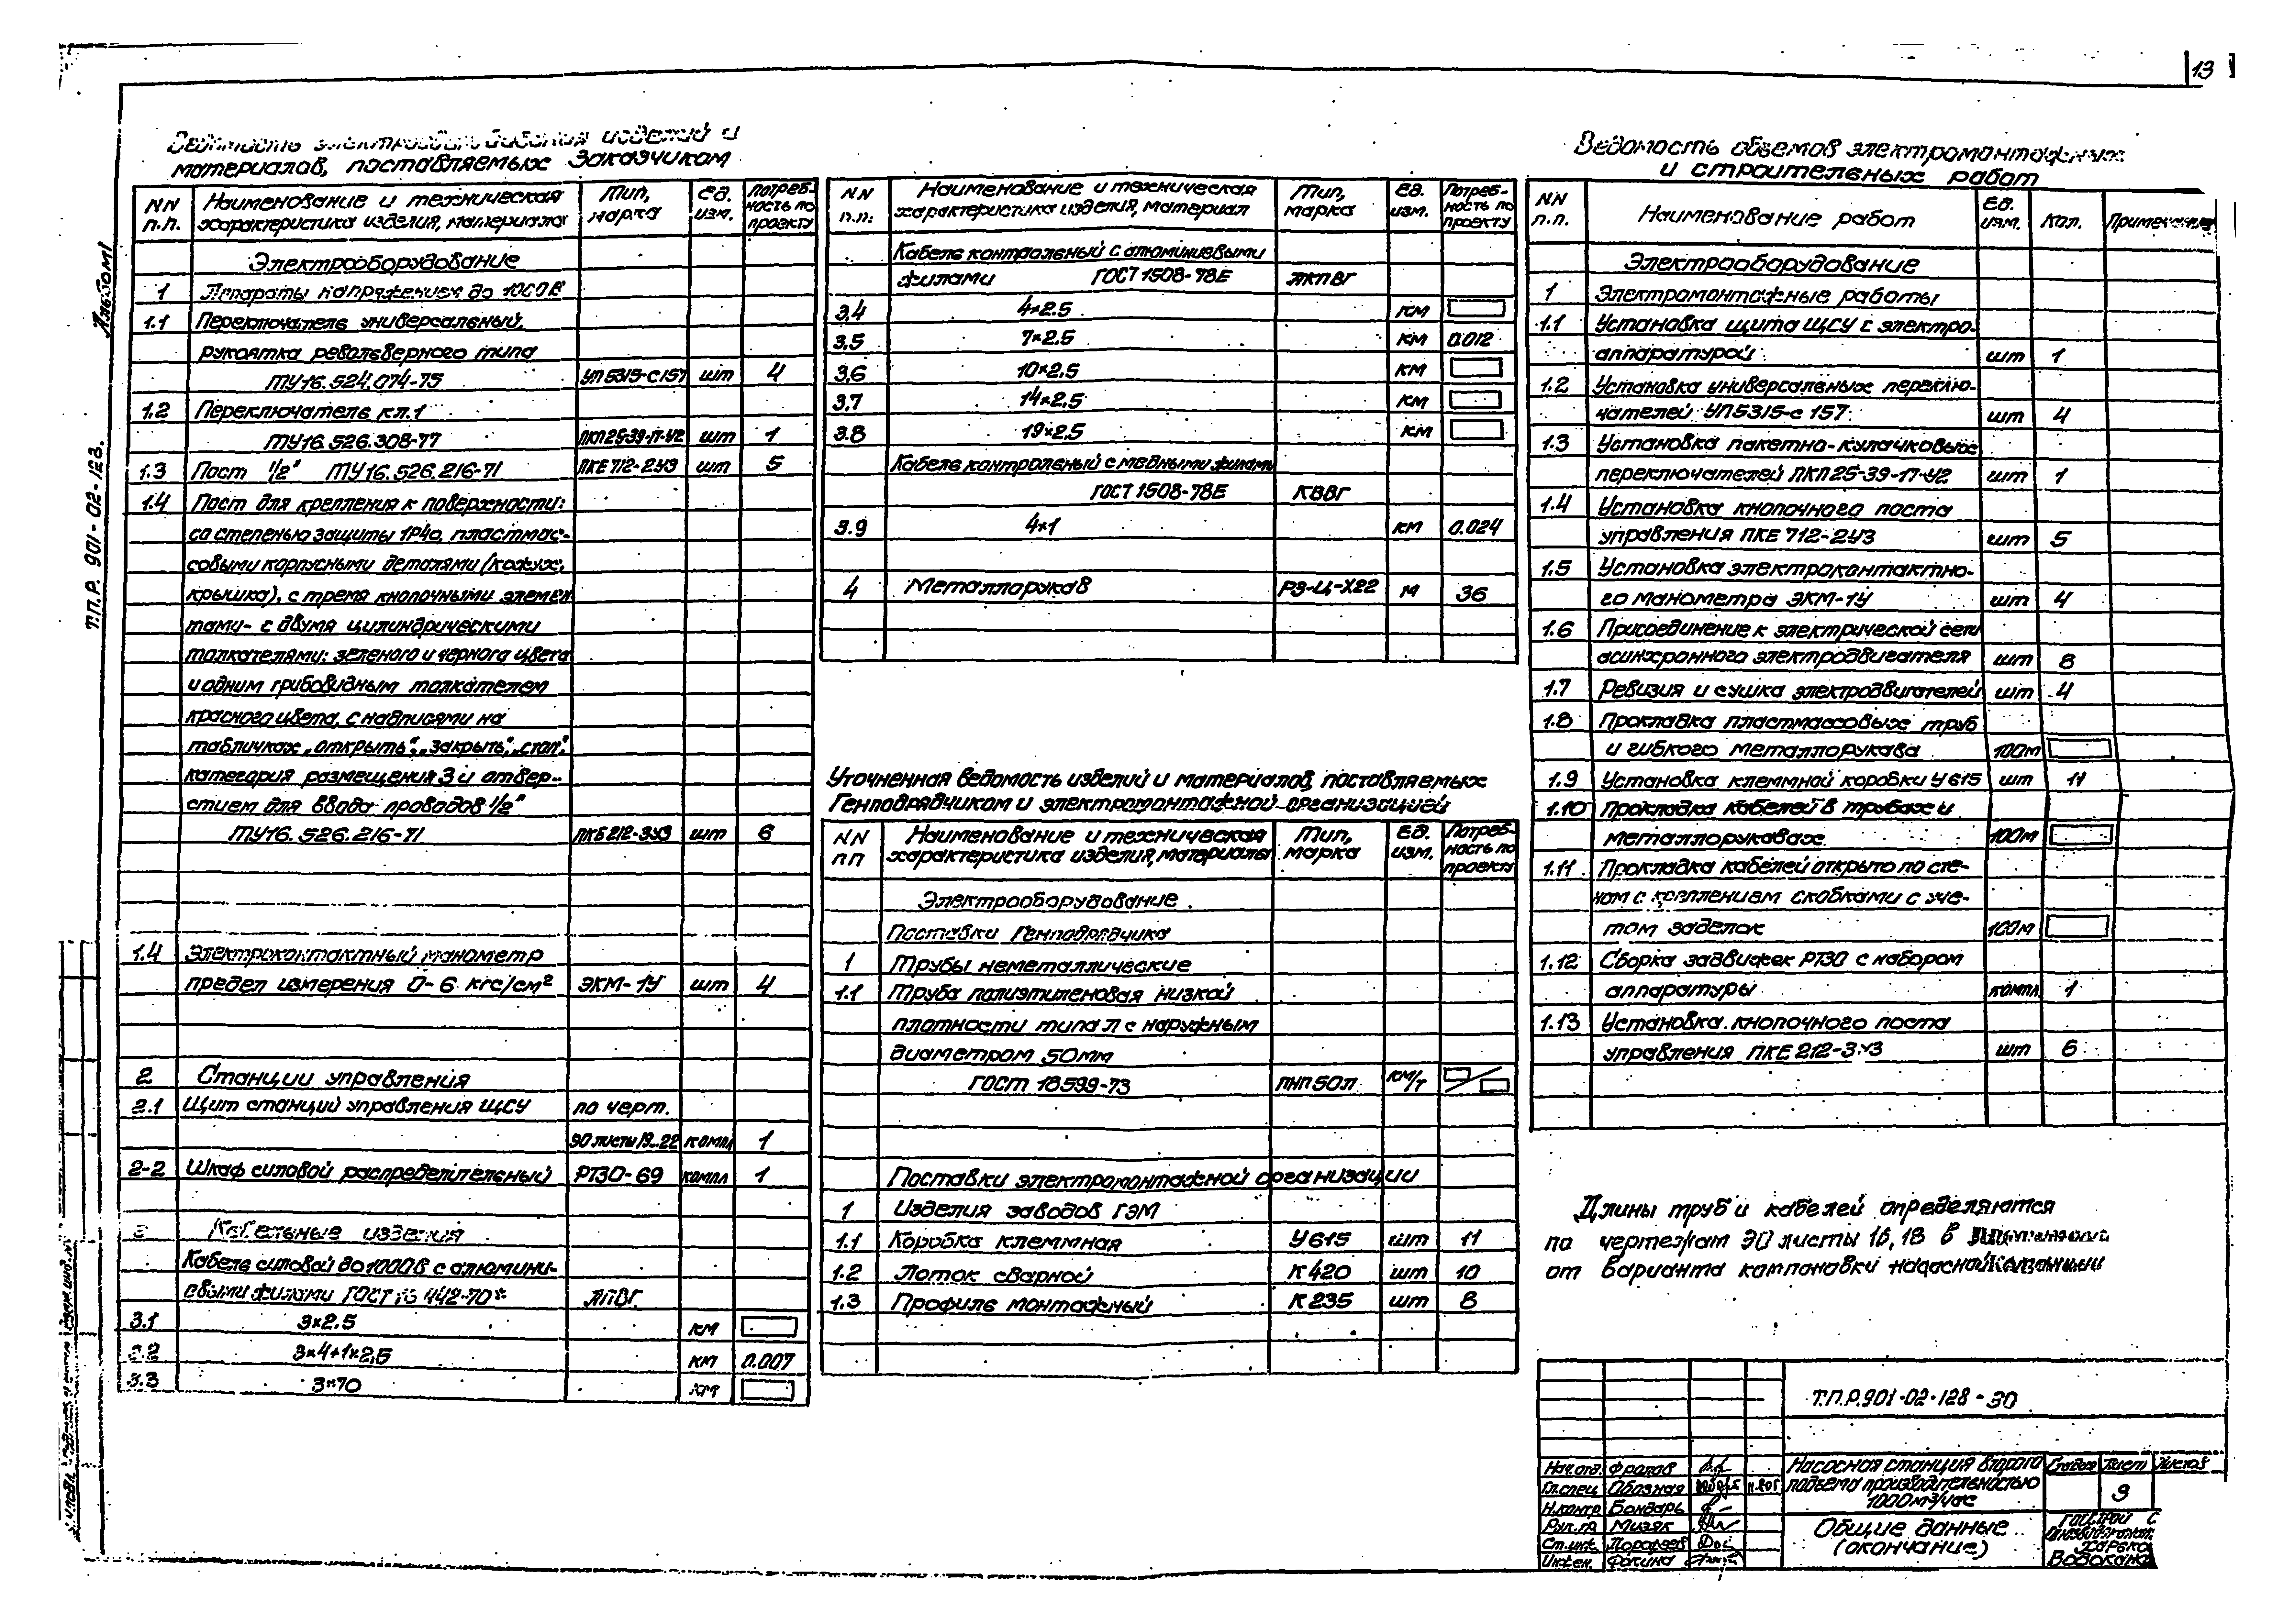 13
Альбом I
Т.П.Р. 901-02-123.
изделий и
материалов, поставляемых заказчиком
NN п.п. Наименование и техническая характеристика изделия, материала Тип, марка Ед. изм. Потребность по проекту
Электрооборудование
1 Аппараты напряжением до 1000 В
1.1 Переключатель универсальный,
рукоятка револьверного типа
ТУ16.524.074-75 УП5315-С157 шт 4
1.2 Переключатель кл.1
ТУ16.526.308-77 ПКП25-39-17-У2 шт 1
1.3 Пост 1/2" ТУ16.526.216-71 ПКЕ712-2У3 шт 5
1.4 Пост для крепления к поверхности:
со степенью защиты IP40, пластмас-
совыми корпусными деталями (кожух,
крышка), с тремя кнопочными элемен
тами- с двумя цилиндрическими
толкателями: зеленого и черного цвета
и одним грибовидным толкателем
красного цвета, с надписями на
табличках „открыть", „закрыть", „стоп",
категория размещения 3 и отвер-
стием для ввода проводов 1/2"
ТУ16.526.216-71 ПКЕ212-3У3 шт 6
1.4 Электроконтактный манометр
предел измерения 0-6 кгс/см² ЭКМ-1У шт 4
2 Станции управления
2.1 Щит станций управления ЩСУ по черт.
ЭО листы 19...22 компл 1
2-2 Шкаф силовой распределительный РТЗО-69 компл 1
3 Кабельные изделия
Кабель силовой до 1000В с алюмини-
евыми жилами ГОСТ 16 442-70* АПВГ
3.1 3×2.5 км
3.2 3×4+1×2,5 км 0.007
3.3 3×70 км
NN п.п. Наименование и техническая характеристика изделия, материал Тип, марка Ед. изм. Потребность по проекту
Кабель контрольный с алюминиевыми
жилами ГОСТ 1508-78Е АКПВГ
3.4 4×2.5 км
3.5 7×2.5 км 0.012
3.6 10×2.5 км
3.7 14×2.5 км
3.8 19×2.5 км
Кабель контрольный с медными жилами
ГОСТ 1508-78Е КВВГ
3.9 4×1 км 0.024
4 Металлорукав РЗ-Ц-Х22 м 36
Уточненная ведомость изделий и материалов, поставляемых
Генподрядчиком и электромонтажной организацией
NN пп Наименование и техническая характеристика изделия, материалы Тип, марка Ед. изм. Потребность по проекту
Электрооборудование
Поставки Генподрядчика
1 Трубы неметаллические
1.1 Труба полиэтиленовая низкой
плотности типа Л с наружным
диаметром 50мм
ГОСТ 18599-73 ПНП 50Л км/т
Поставки электромонтажной организации
1 Изделия заводов ГЭМ
1.1 Коробка клеммная У615 шт 11
1.2 Лоток сварной К420 шт 10
1.3 Профиль монтажный К235 шт 8
Ведомость объемов электромонтажных
и строительных работ
NN п.п. Наименование работ Ед. изм. Кол. Примечание
Электрооборудование
1 Электромонтажные работы
1.1 Установка щита ЩСУ с электро-
аппаратурой шт 1
1.2 Установка универсальных переклю-
чателей УП5315-с 157 шт 4
1.3 Установка пакетно-кулачковых
переключателей ПКП25-39-17-У2 шт 1
1.4 Установка кнопочного поста
управления ПКЕ 712-2У3 шт 5
1.5 Установка электроконтактно-
го манометра ЭКМ-1У шт 4
1.6 Присоединение к электрической сети
асинхронного электродвигателя шт 8
1.7 Ревизия и сушка электродвигателей шт 4
1.8 Прокладка пластмассовых труб
и гибкого металлорукава 100м
1.9 Установка клеммной коробки У615 шт 11
1.10 Прокладка кабелей в трубах и
металлорукавах 100м
1.11 Прокладка кабелей открыто по сте-
нам с креплением скобками с уче-
том заделок 100м
1.12 Сборка задвижек РТЗО с набором
аппаратуры компл 1
1.13 Установка кнопочного поста
управления ПКЕ 212-3У3 шт 6
Длины труб и кабелей определяются
по чертежам ЭО листы 16, 18 в
от варианта компоновки насосной
Т.П.Р.901-02-128-ЭО
Нач.отд. Фролов
Гл.спец Обозная
Н.контр Бондарь
Рук.гр Мизяк
Ст.инж
Инжен. Фокина
Насосная станция второго
подъема производительностью
1000м³/час
Стадия Лист Листов
3
Общие данные
(окончание)
Госстрой С
Харько
Водокана